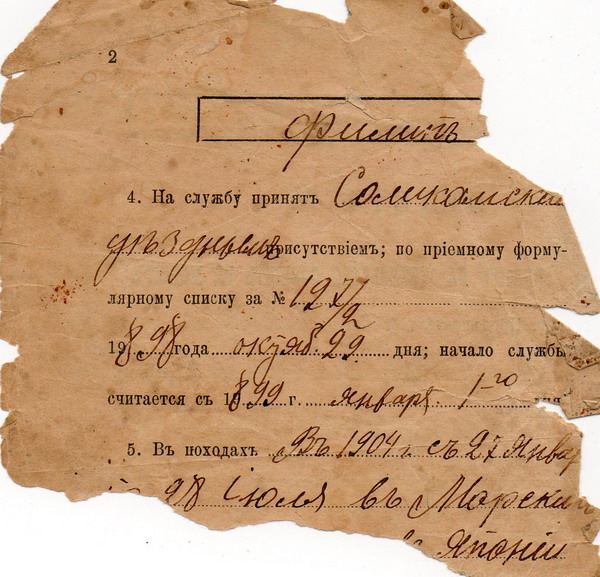 2
Филипъ
4. На службу принятъ Соликамски
уѣзднымъ присутствіемъ; по пріемному форму-
лярному списку за № 1977/2
1898 года октяб. 29 дня; начало службы
считается съ 1899 г. января 1-го дня
5. Въ походахъ Въ 1904 г. съ 27 Январ
28 Іюля въ Морски
Японіи